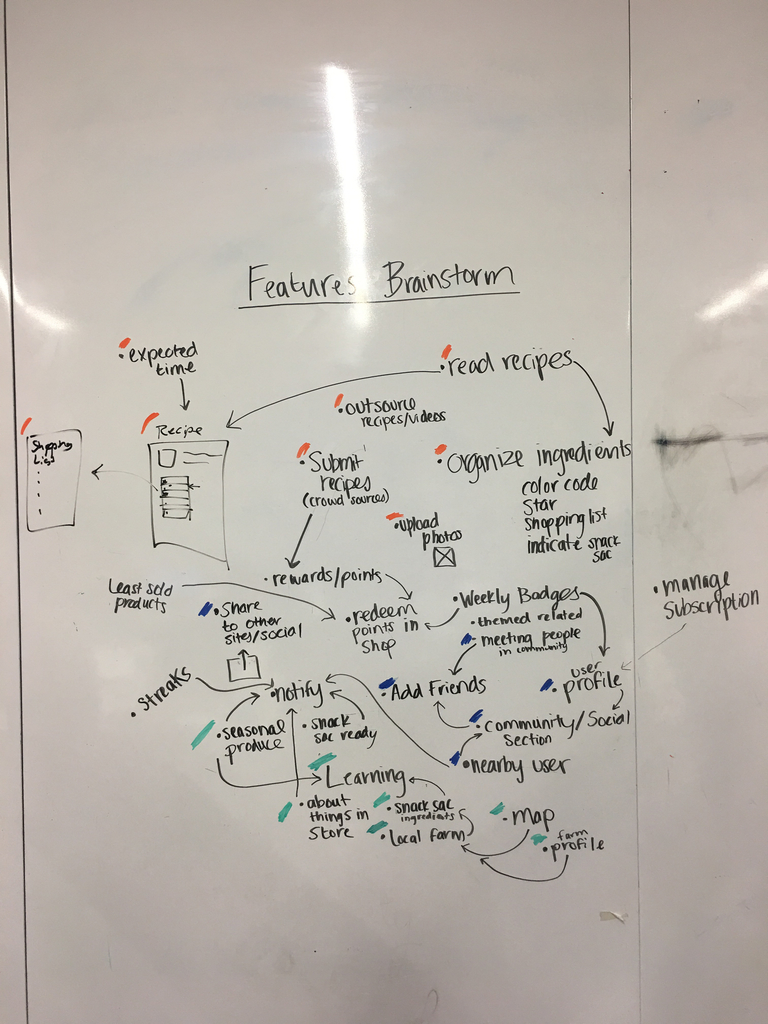 Features Brainstorm
• expected
time
• read recipes
• outsource
recipes/videos
Recipe
Shopping
List
• Submit
recipes
(crowd sources)
• Organize ingredients
color code
star
shopping list
indicate snack
sac
• upload
photos
• rewards/points
Least sold
products
• Share
to other
sites/social
• redeem
points in
Shop
• Weekly Badges
• themed related
• meeting people
in community
• manage
subscription
• streaks
• notify
• Add Friends
• user
profile
• seasonal
produce
• snack
sac ready
• community/Social
section
• nearby user
• Learning
• about
things in
Store
• snack sac
ingredients
• local farm
• map
• farm
profile